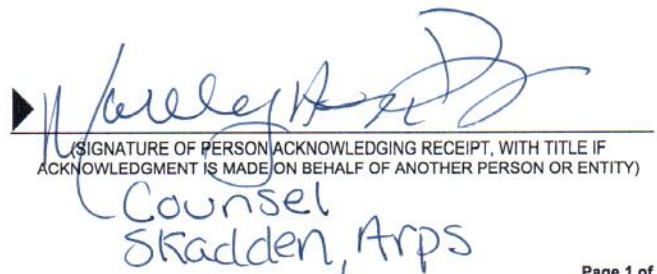 (SIGNATURE OF PERSON ACKNOWLEDGING RECEIPT, WITH TITLE IF
ACKNOWLEDGMENT IS MADE ON BEHALF OF ANOTHER PERSON OR ENTITY)
Counsel
Skadden, Arps
Page 1 of